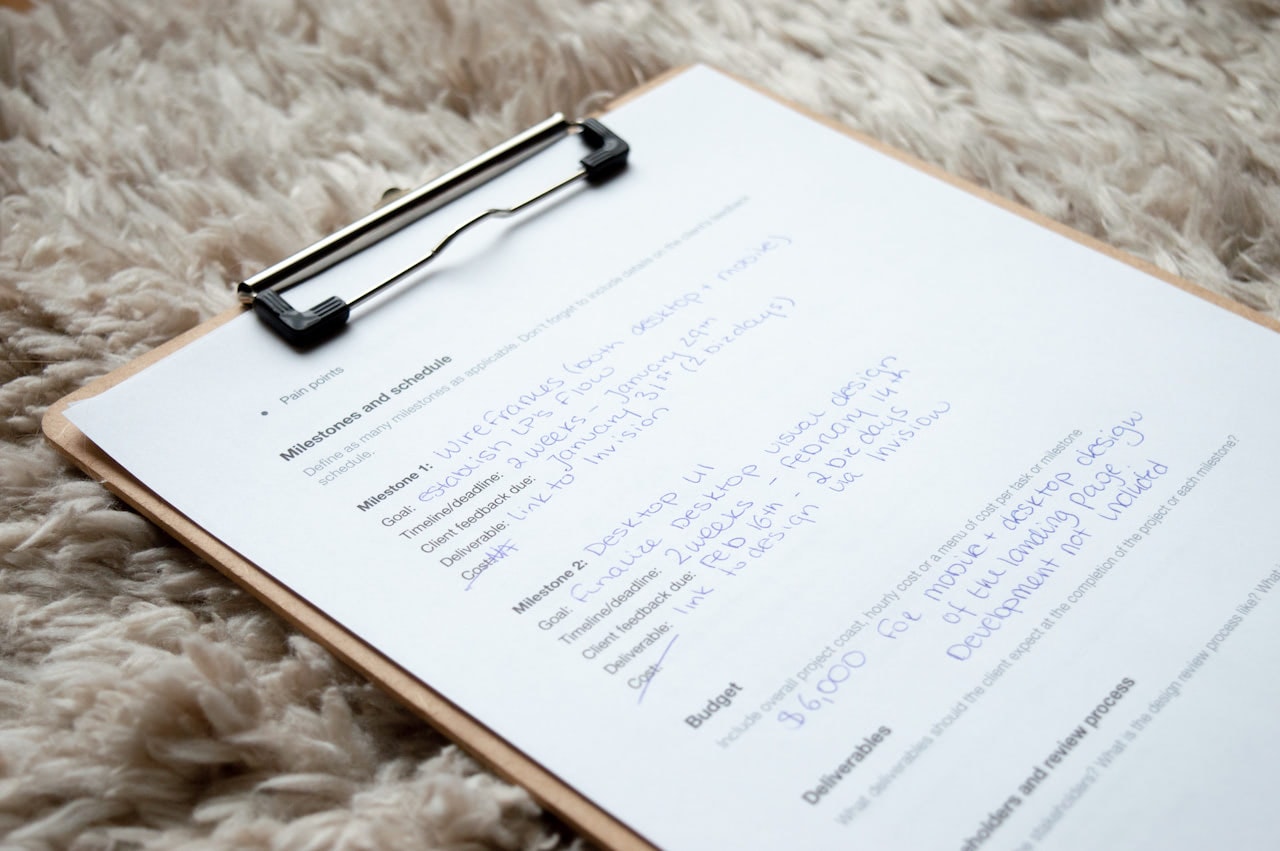 • Pain points
Milestones and schedule
Define as many milestones as applicable. Don't forget to include details on the client's feedback
schedule.
Milestone 1: Wireframes (both desktop + mobile)
Goal: establish LP's flow
Timeline/deadline: 2 weeks - January 29th
Client feedback due: January 31st (2 biz days)
Deliverable: link to Invision
Cost:
Milestone 2: Desktop UI
Goal: Finalize Desktop visual design
Timeline/deadline: 2 weeks - February 14th
Client feedback due: Feb 16th - 2 biz days
Deliverable: link to design via Invision
Cost:
Budget
Include overall project coast, hourly cost or a menu of cost per task or milestone
$6,000 for mobile + desktop design
of the landing page
Development not included
Deliverables
What deliverables should the client expect at the completion of the project or each milestone?
eholders and review process
the stakeholders? What is the design review process like? What